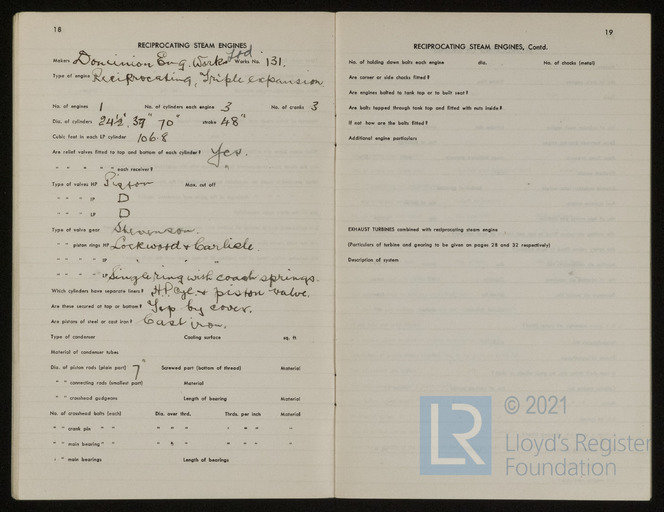 18
RECIPROCATING STEAM ENGINES
Makers Dominion Eng. Works Ltd Works No. 131.
Type of engine Reciprocating, Triple expansion
No. of engines 1 No. of cylinders each engine 3 No. of cranks 3
Dia. of cylinders 24½" 39" 70" stroke 48"
Cubic feet in each LP cylinder 106.8
Are relief valves fitted to top and bottom of each cylinder? Yes.
" " " " " each receiver? "
Type of valves HP Piston Max. cut off
" " " IP D
" " " LP D
Type of valve gear Stevenson.
" " piston rings HP Lockwood & Carlisle.
" " " " IP " "
" " " " LP Single ring with coach springs.
Which cylinders have separate liners? H.P. cyl. & piston valve.
Are these secured at top or bottom? Top by cover.
Are pistons of steel or cast iron? Cast iron.
Type of condenser Cooling surface sq. ft.
Material of condenser tubes
Dia. of piston rods (plain part) 7" Screwed part (bottom of thread) Material
" " connecting rods (smallest part) Material
" " crosshead gudgeons Length of bearing Material
No. of crosshead bolts (each) Dia. over thrd. Thrds. per inch Material
" " crank pin " " " " " " " " "
" " main bearing " " " " " " " " "
" " main bearings Length of bearings
19
RECIPROCATING STEAM ENGINES, Contd.
No. of holding down bolts each engine dia. No. of chocks (metal)
Are corner or side chocks fitted?
Are engines bolted to tank top or to built seat?
Are bolts tapped through tank top and fitted with nuts inside?
If not how are the bolts fitted?
Additional engine particulars
EXHAUST TURBINES combined with reciprocating steam engine
(Particulars of turbine and gearing to be given on pages 28 and 32 respectively)
Description of system
LR
© 2021
Lloyd's Register
Foundation